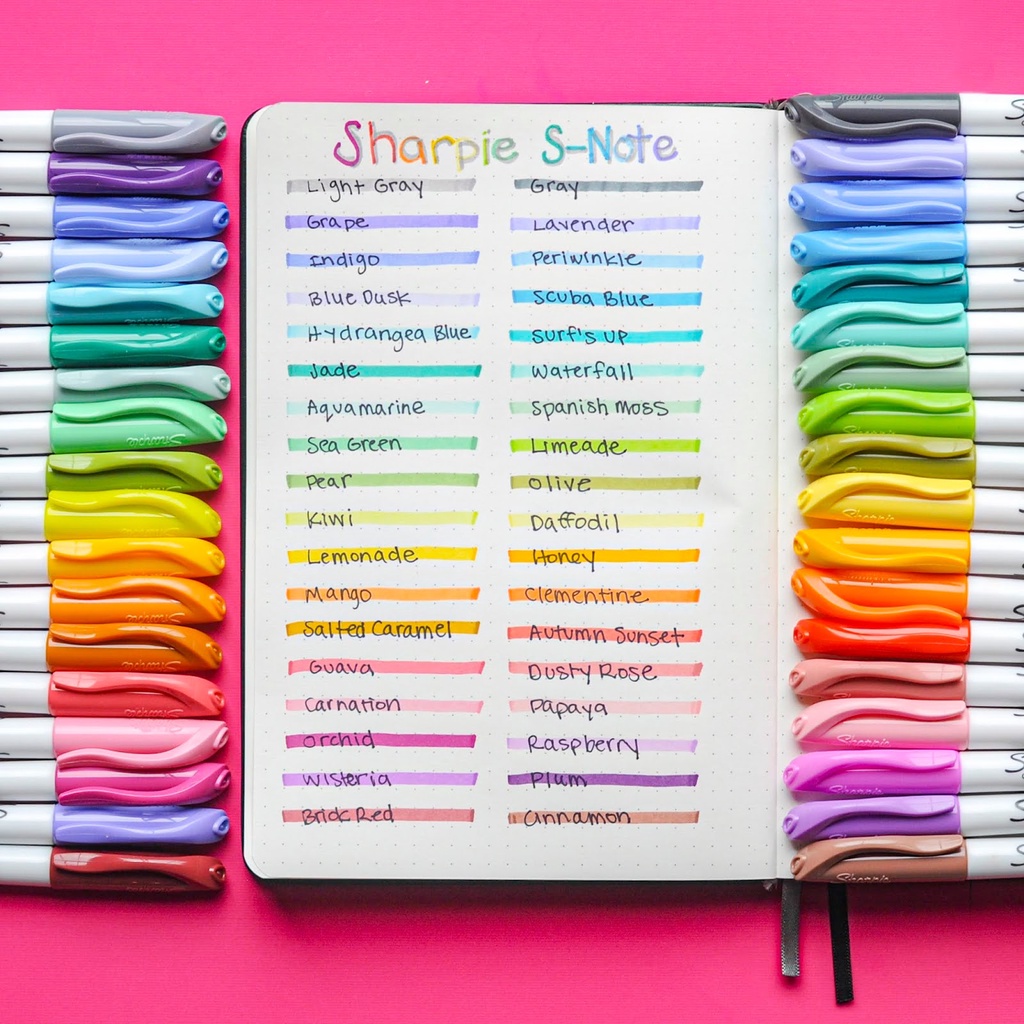 Sharpie S-Note
Light Gray Gray
Grape Lavender
Indigo Periwinkle
Blue Dusk Scuba Blue
Hydrangea Blue Surf's up
Jade Waterfall
Aquamarine Spanish Moss
Sea Green Limeade
Pear Olive
Kiwi Daffodil
Lemonade Honey
Mango Clementine
Salted Caramel Autumn Sunset
Guava Dusty Rose
Carnation Papaya
Orchid Raspberry
Wisteria Plum
Brick Red Cinnamon